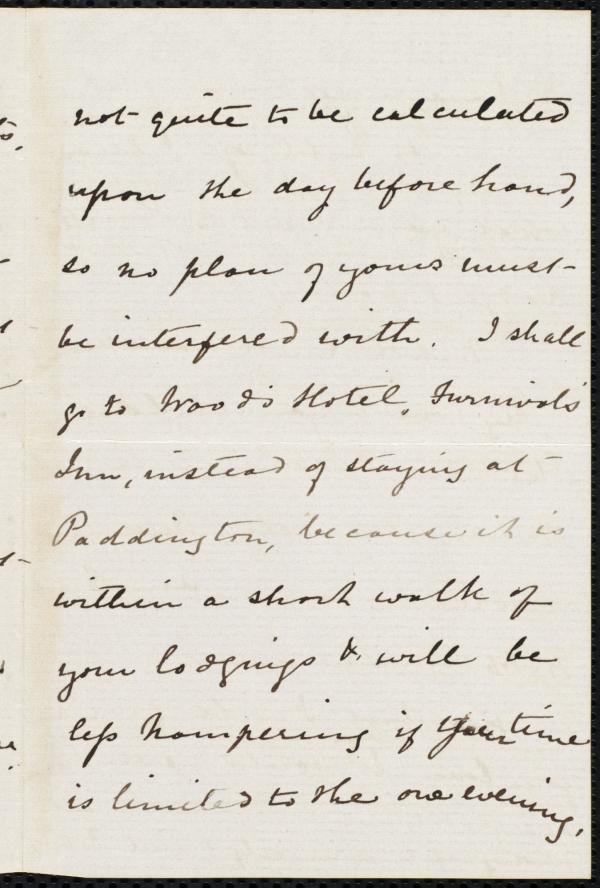 not quite to be calculated
upon the day before hand,
so no plan of yours must
be interfered with. I shall
go to Wood's Hotel, Furnival's
Inn, instead of staying at
Paddington, because it is
within a short walk of
your lodgings & will be
less hampering if your time
is limited to the one evening,